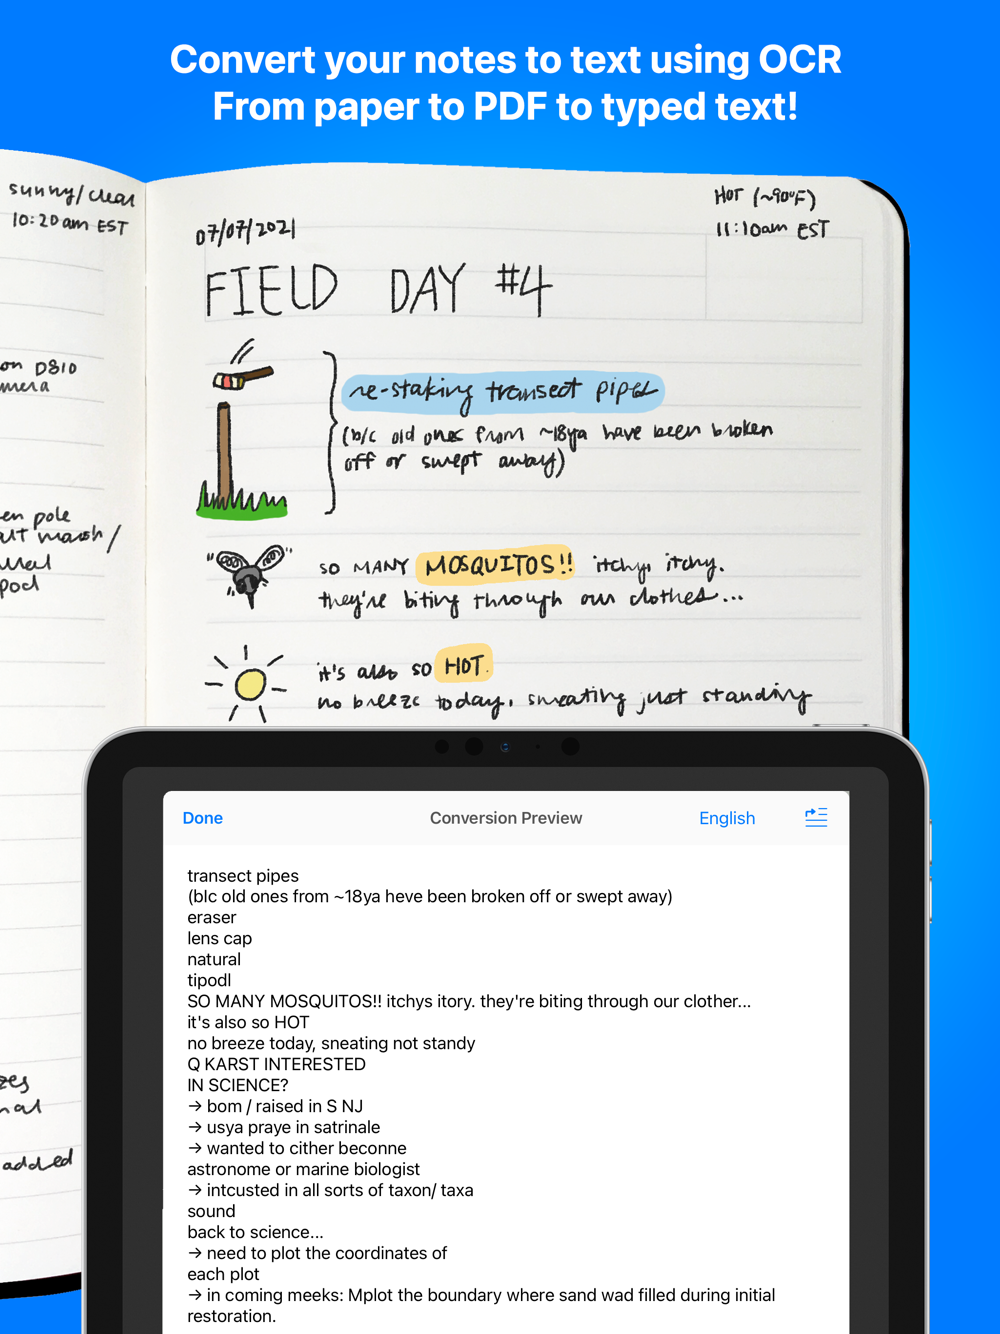 Convert your notes to text using OCR
From paper to PDF to typed text!
sunny/clear
10:20am EST
on D810
mera
en pole
alt marsh/
pod
zes
nal
added
HOT (~90°F)
11:10am EST
07/07/2021
FIELD DAY #4
re-staking transect pipes
(b/c old ones from ~18ya have been broken
off or swept away)
SO MANY MOSQUITOS!! itchy, itchy.
they're biting through our clothes...
it's also so HOT.
no breeze today, sweating just standing
Done
Conversion Preview
English
transect pipes
(blc old ones from ~18ya heve been broken off or swept away)
eraser
lens cap
natural
tipodl
SO MANY MOSQUITOS!! itchys itory. they're biting through our clother...
it's also so HOT
no breeze today, sneating not standy
Q KARST INTERESTED
IN SCIENCE?
→ bom / raised in S NJ
→ usya praye in satrinale
→ wanted to cither beconne
astronome or marine biologist
→ intcusted in all sorts of taxon/ taxa
sound
back to science...
→ need to plot the coordinates of
each plot
→ in coming meeks: Mplot the boundary where sand wad filled during initial
restoration.